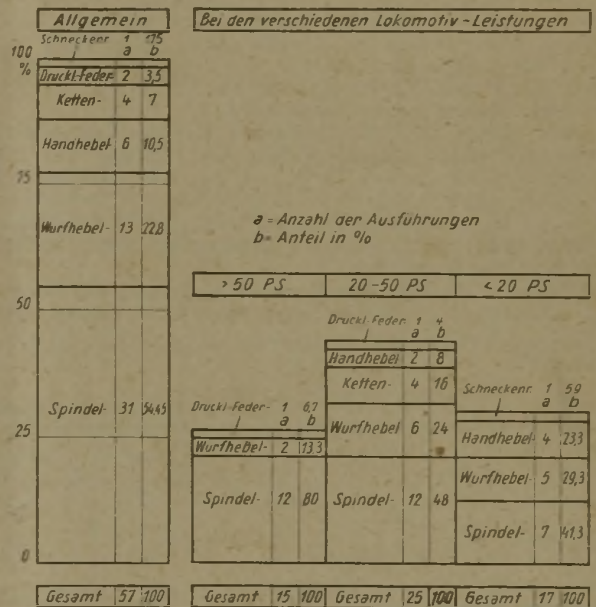 Allgemein
Schneckenr. 1 1,75
a b
100
%
Druckl.-Feder- 2 3,5
Ketten- 4 7
Handhebel- 6 10,5
75
Wurfhebel- 13 22,8
50
Spindel- 31 54,45
25
0
Gesamt 57 100
Bei den verschiedenen Lokomotiv-Leistungen
a = Anzahl der Ausführungen
b = Anteil in %
> 50 PS 20-50 PS < 20 PS
Druckl.-Feder- 1 6,7
a b
Wurfhebel- 2 13,3
Spindel- 12 80
Gesamt 15 100
Druckl.-Feder- 1 4
a b
Handhebel 2 8
Ketten- 4 16
Wurfhebel 6 24
Spindel- 12 48
Gesamt 25 100
Schneckenr. 1 5,9
a b
Handhebel- 4 23,3
Wurfhebel- 5 29,3
Spindel- 7 41,3
Gesamt 17 100